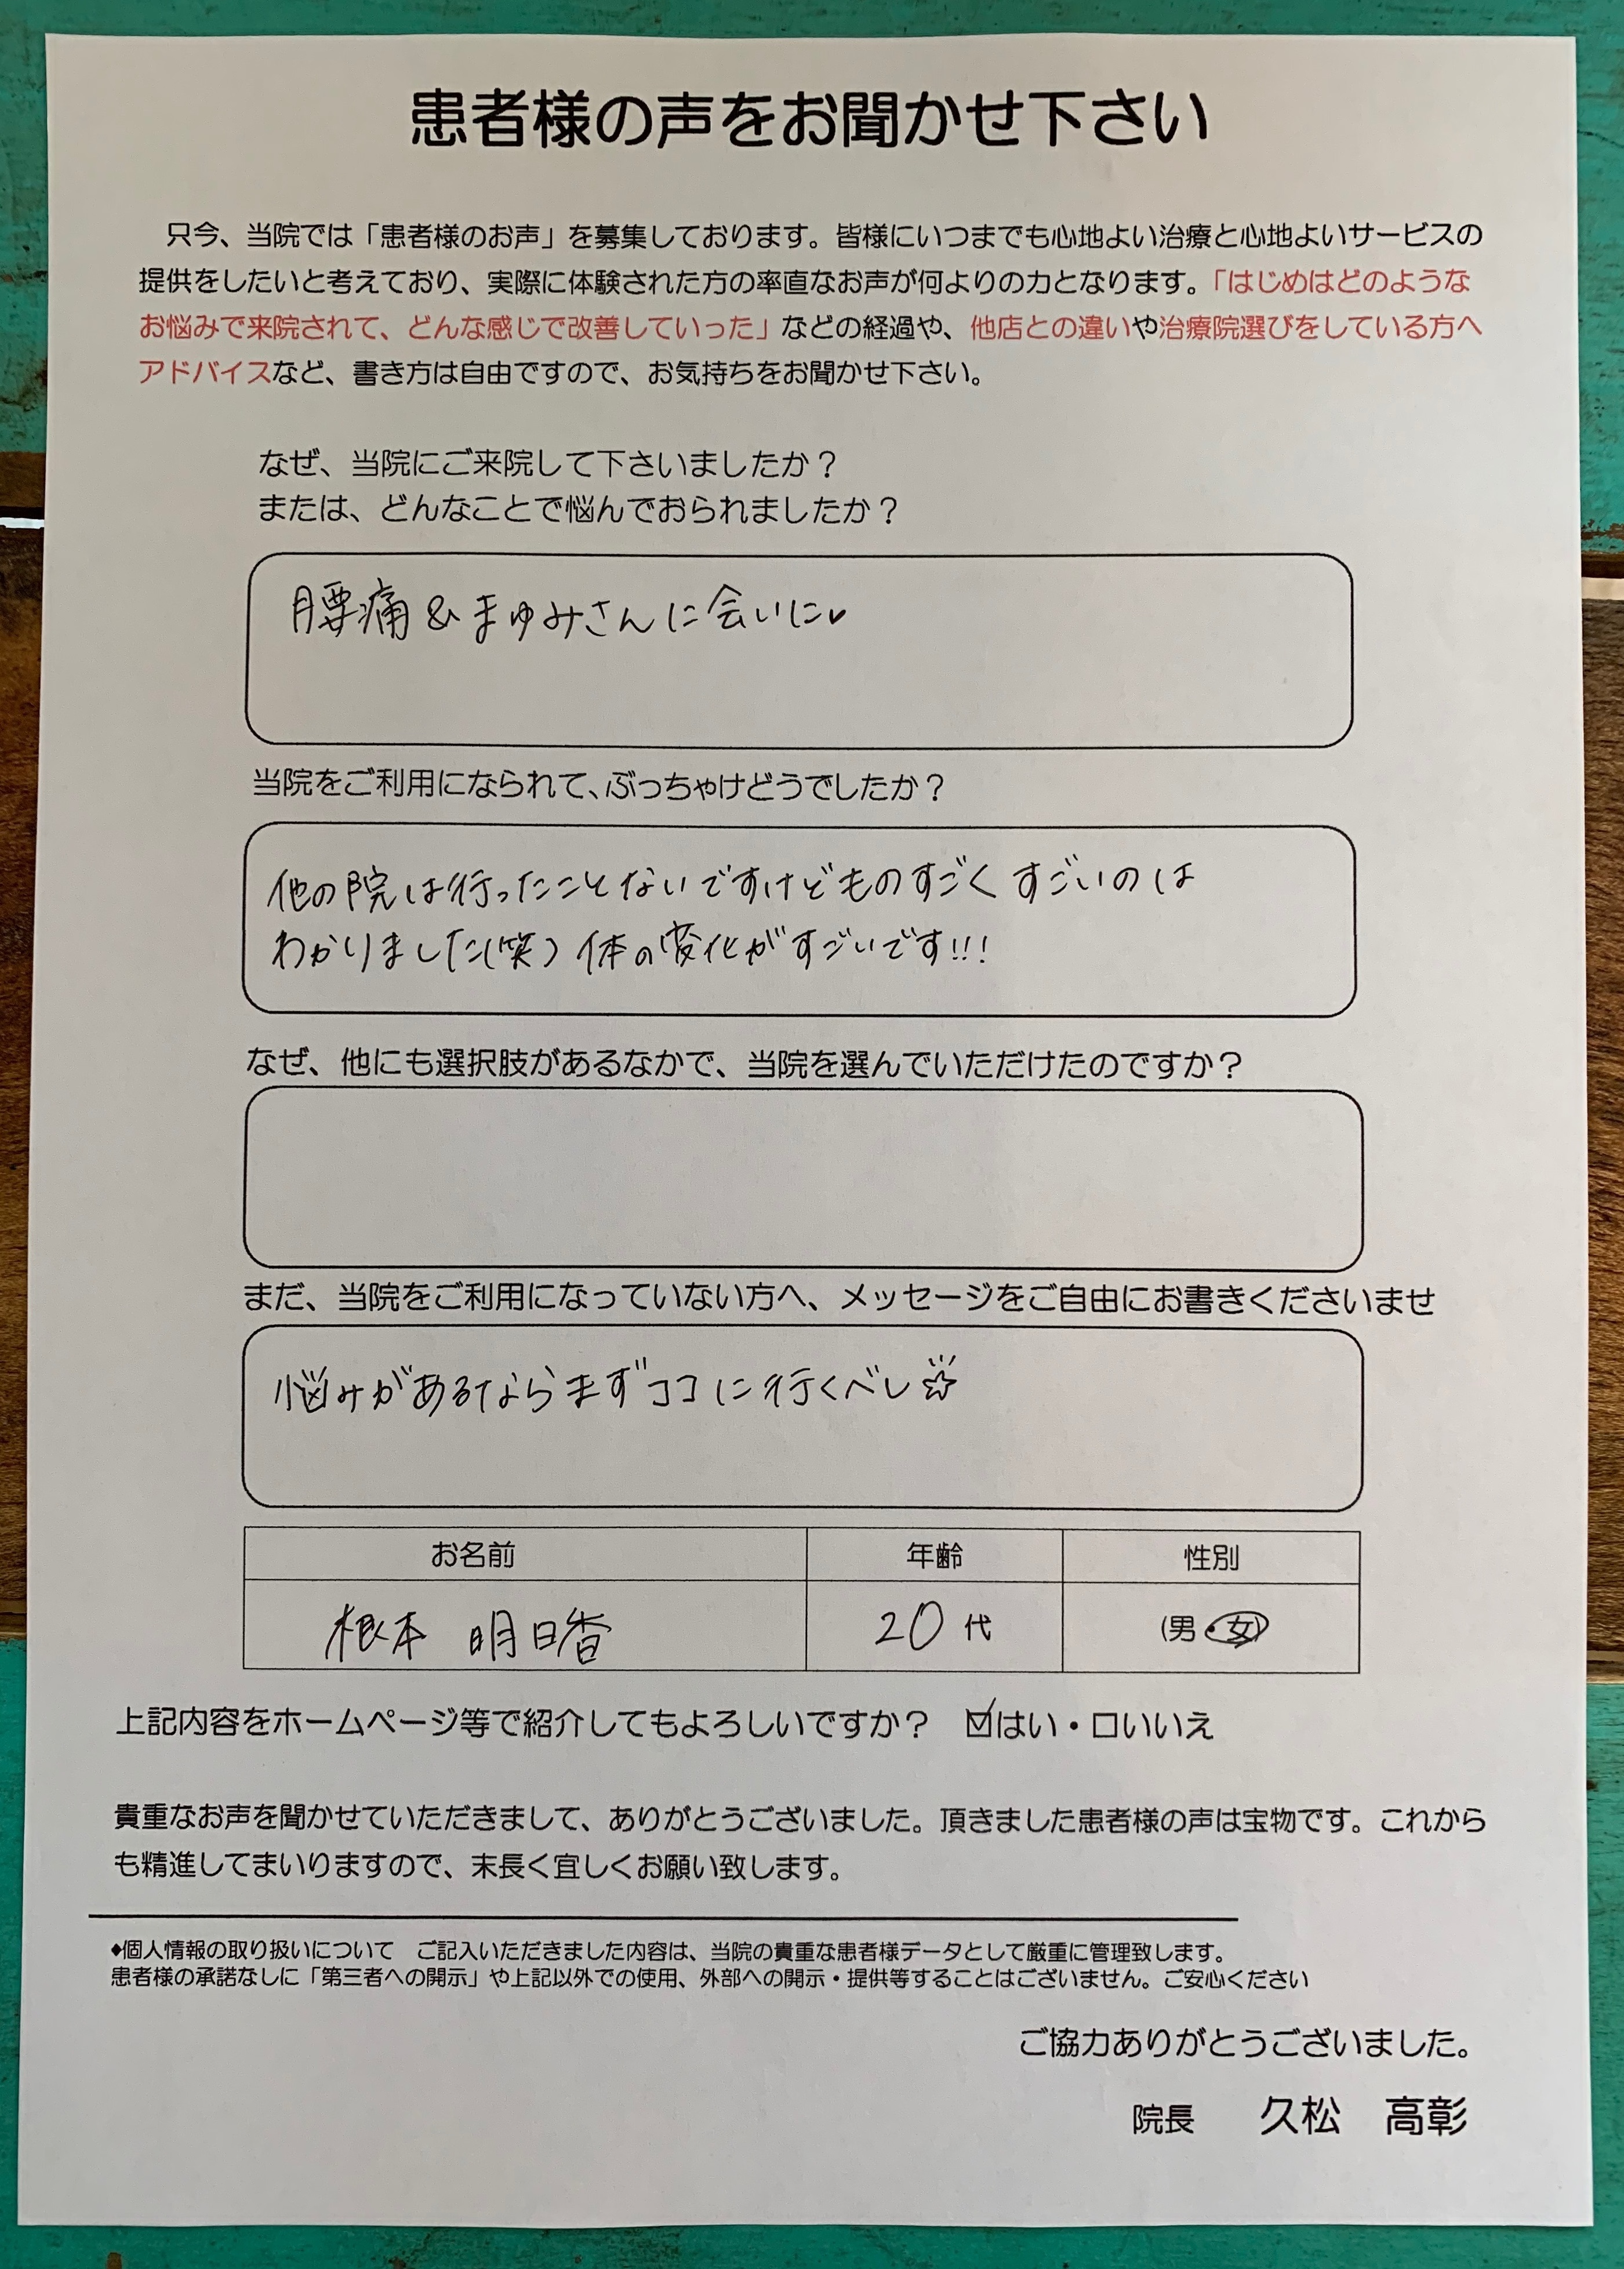 患者様の声をお聞かせ下さい
只今、当院では「患者様のお声」を募集しております。皆様にいつまでも心地よい治療と心地よいサービスの
提供をしたいと考えており、実際に体験された方の率直なお声が何よりの力となります。「はじめはどのような
お悩みで来院されて、どんな感じで改善していった」などの経過や、他店との違いや治療院選びをしている方へ
アドバイスなど、書き方は自由ですので、お気持ちをお聞かせ下さい。
なぜ、当院にご来院して下さいましたか？
または、どんなことで悩んでおられましたか？
腰痛＆まゆみさんに会いに♥
当院をご利用になられて、ぶっちゃけどうでしたか？
他の院は行ったことないですけどものすごくすごいのは
わかりました(笑) 体の変化がすごいです!!!
なぜ、他にも選択肢があるなかで、当院を選んでいただけたのですか？
まだ、当院をご利用になっていない方へ、メッセージをご自由にお書きくださいませ
悩みがあるならまずココに行くべし☆
お名前 年齢 性別
根本 明日香 20代 (男・女)
上記内容をホームページ等で紹介してもよろしいですか？ ☑はい・□いいえ
貴重なお声を聞かせていただきまして、ありがとうございました。頂きました患者様の声は宝物です。これから
も精進してまいりますので、末長く宜しくお願い致します。
◆個人情報の取り扱いについて ご記入いただきました内容は、当院の貴重な患者様データとして厳重に管理致します。
患者様の承諾なしに「第三者への開示」や上記以外での使用、外部への開示・提供等することはございません。ご安心ください
ご協力ありがとうございました。
院長 久松 高彰